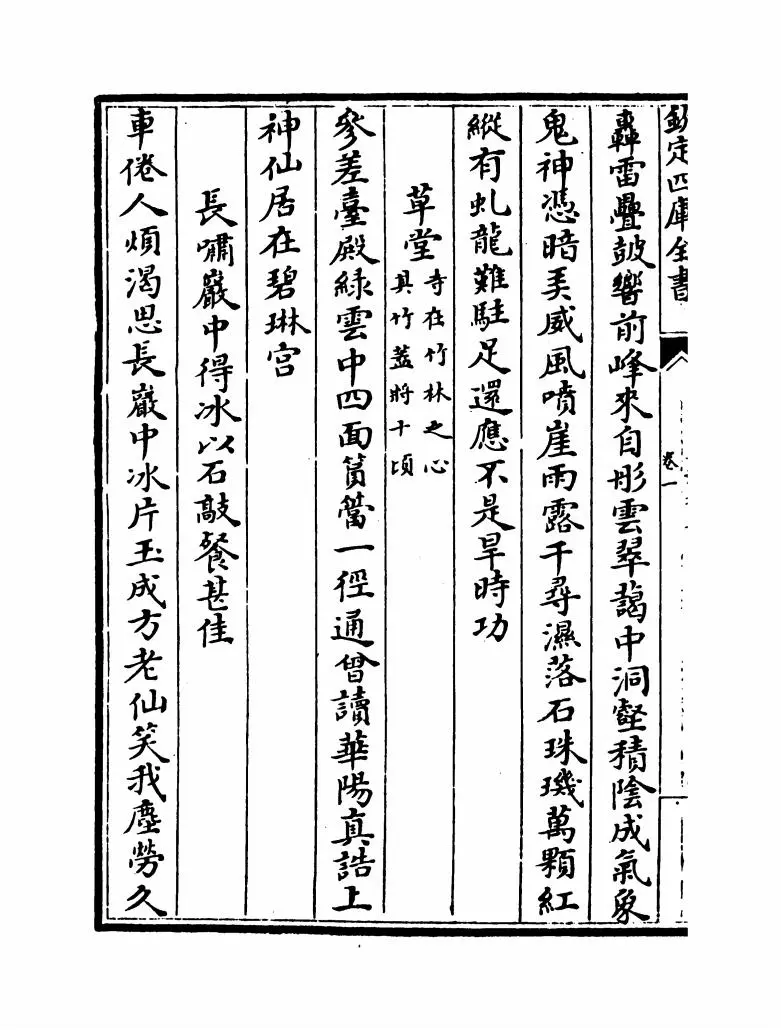 欽定四庫全書
卷一
轟雷疊鼓響前峰來自彤雲翠藹中洞壑積陰成氣象
鬼神憑暗弄威風噴崖雨露千尋濕落石珠璣萬顆紅
縱有虬龍難駐足還應不是旱時功
草堂
寺在竹林之心
其竹蓋將十頃
參差臺殿綠雲中四面篔簹一徑通曾讀華陽真誥上
神仙居在碧琳宫
長嘯巖中得冰以石敲餐甚佳
車倦人煩渴思長巖中冰片玉成方老仙笑我塵勞久